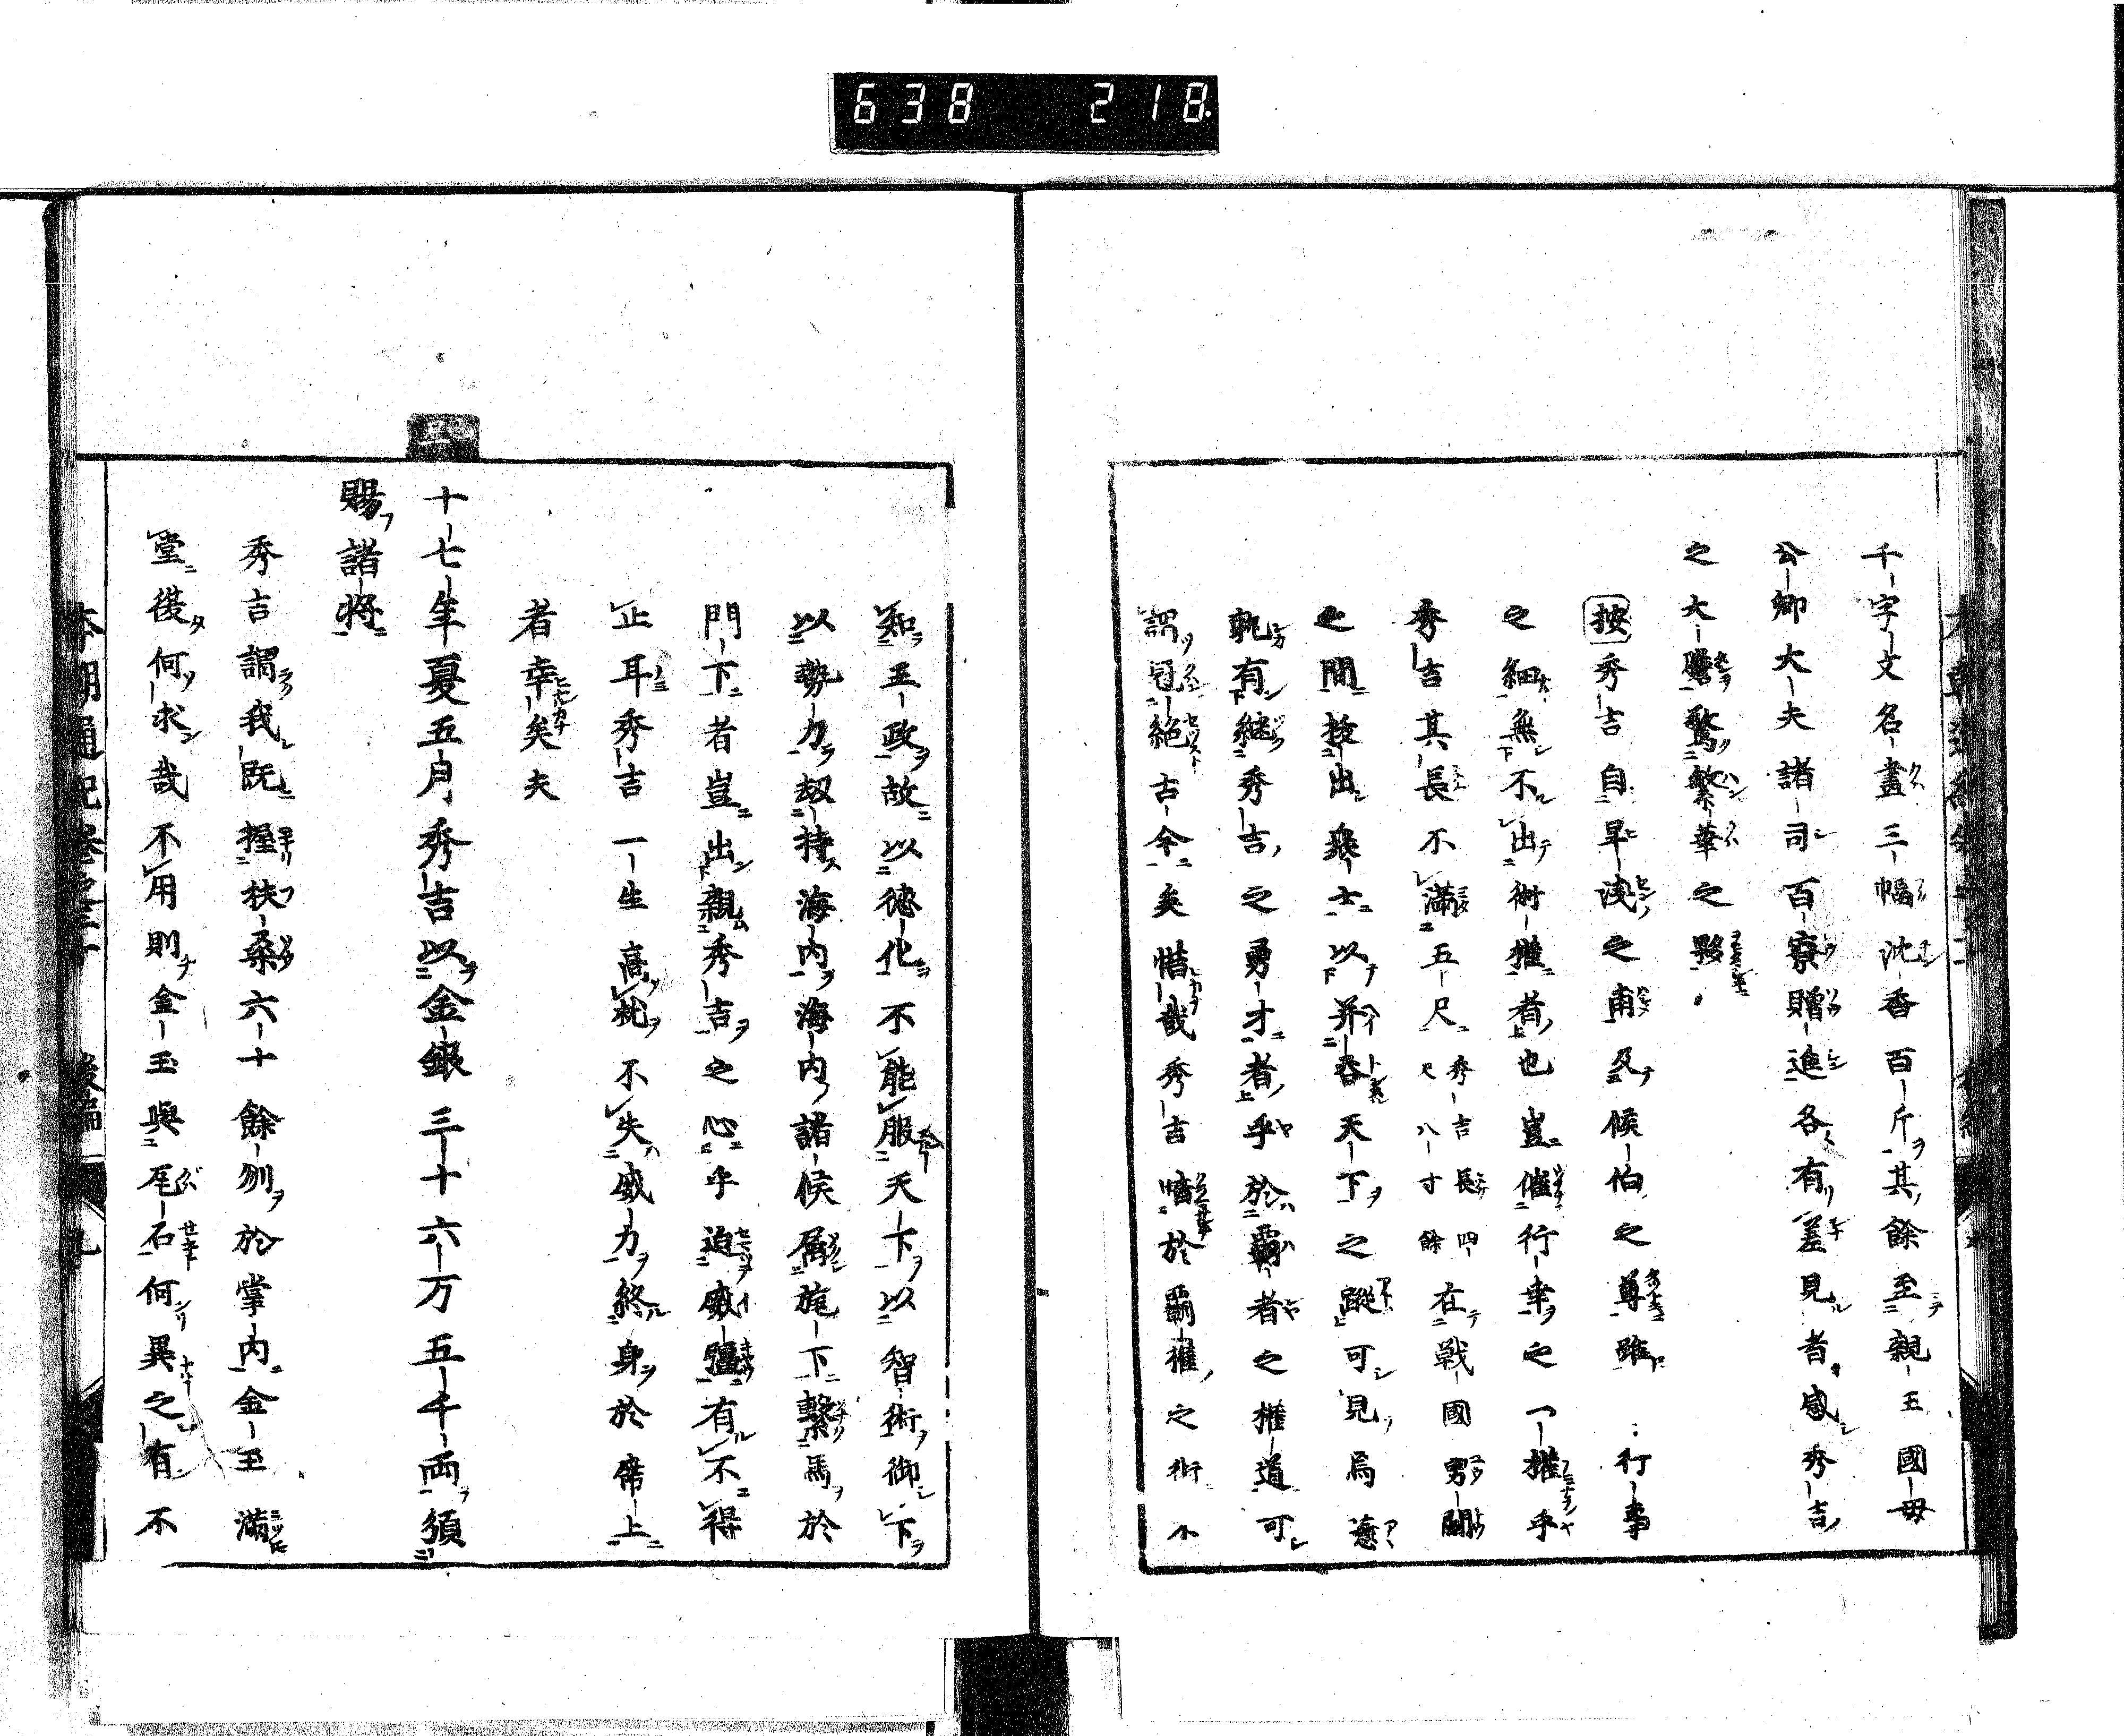 638 218
千字文名畫三幅沈香百斤其餘至親王國母
公卿大夫諸司百寮贈進各有差見者感秀吉
之大膽驚繁華之夥
按秀吉自早淺之甫及候伯之尊雖行事
之細無不出術權者也豈催行幸之一權乎
秀吉其長不滿五尺秀吉長四尺八寸餘在戰國勇鬪
之間拔出衆士以并吞天下之蹤可見焉噫
孰有繼秀吉之勇才者乎於霸者之權道可
謂冠絕古今矣惜哉秀吉暗於霸權之術不
知王政故以德化不能服天下以智術御下
以勢力劫持海内海内諸候屬旄下繫馬於
門下者豈出親秀吉之心乎迫威強有不得
止耳秀吉一生高枕不失威力終身於席上
者幸矣夫
十七年夏五月秀吉以金銀三十六万五千両須
賜諸將
秀吉謂我既握扶桑六十餘州於掌内金玉滿
堂從何求哉不用則金玉與瓦石何異之有不
本朝通紀卷 後編 九